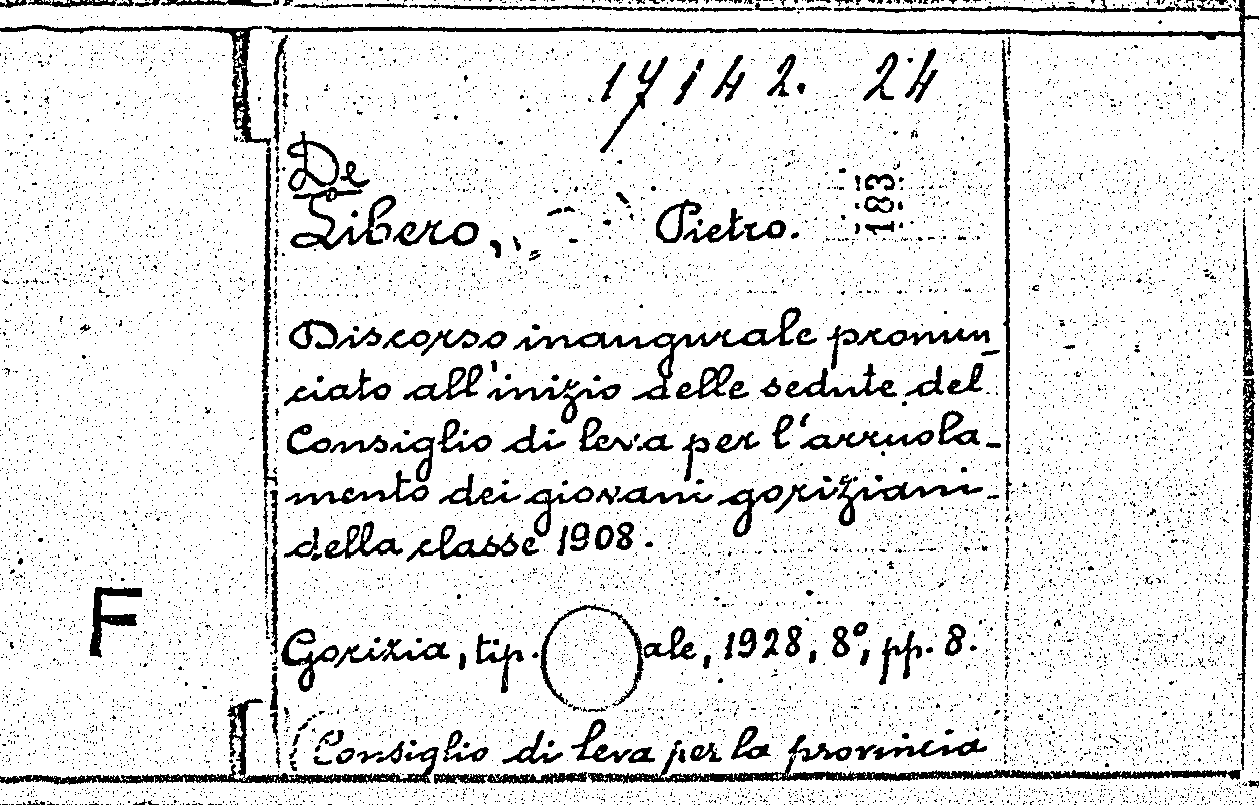 17142. 24
De
Libero, Pietro.
183
Discorso inaugurale pronun_
ciato all'inizio delle sedute del
Consiglio di leva per l'arruola_
mento dei giovani goriziani_
della classe 1908.
F
Gorizia, tip. ale, 1928, 8°, pp. 8.
(Consiglio di leva per la provincia